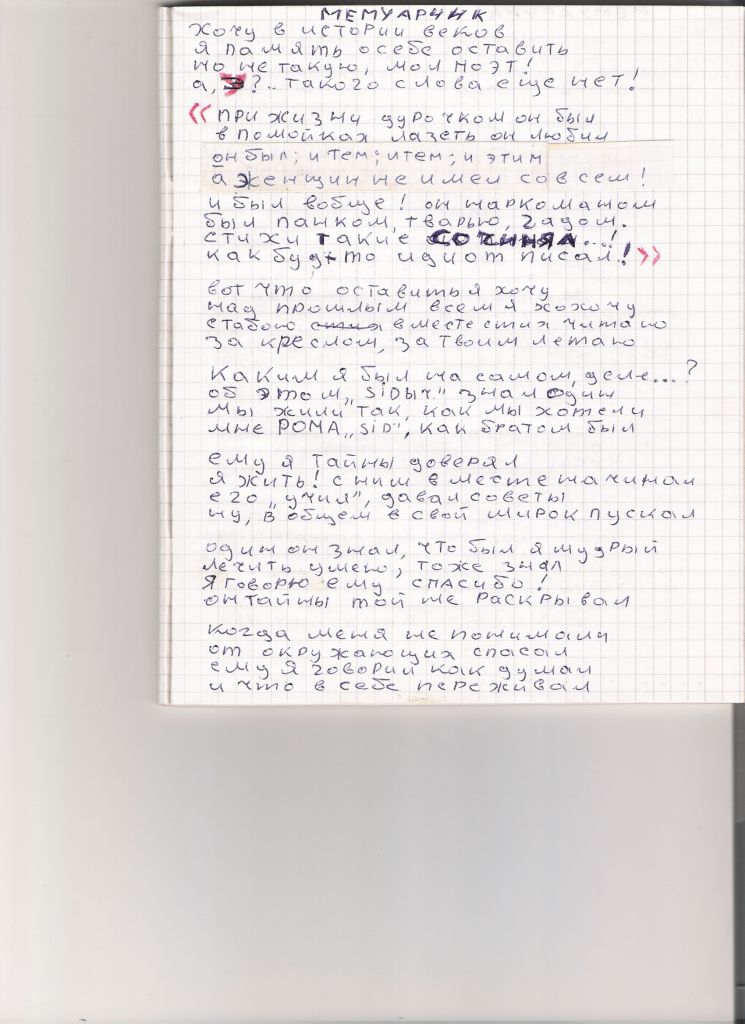 МЕМУАРЧИК
хочу в истории веков
я память осебе оставить
но не такую, мол поэт!
а, э?.. такого слова еще нет!
« при жизни дурочком он был
в помойках лазеть он любил
он был; и тем; и тем; и этим
а женщин не имел совсем!
и был вобще! он наркоманом
был панком, тварью, гадом.
стихи такие сочинял...!
как буд-то идиот писал! »
вот что оставить я хочу
над прошлым всем я хохочу
стабою вместе стих читаю
за креслом, за твоим летаю
каким я был на самом, деле...?
об этом „SIDыч" знал один
мы жили так, как мы хотели
мне РОМА „SID", как братом был
ему я тайны доверял
я жить! с ним вместе начинал
его „учил", давал советы
ну, в общем в свой мирок пускал
один он знал, что был я мудрый
лечить умею, тоже знал
я говорю ему спасибо!
он тайны той не раскрывал
когда меня не понимали
от окружающих спасал
ему я говорил как думал
и что в себе переживал